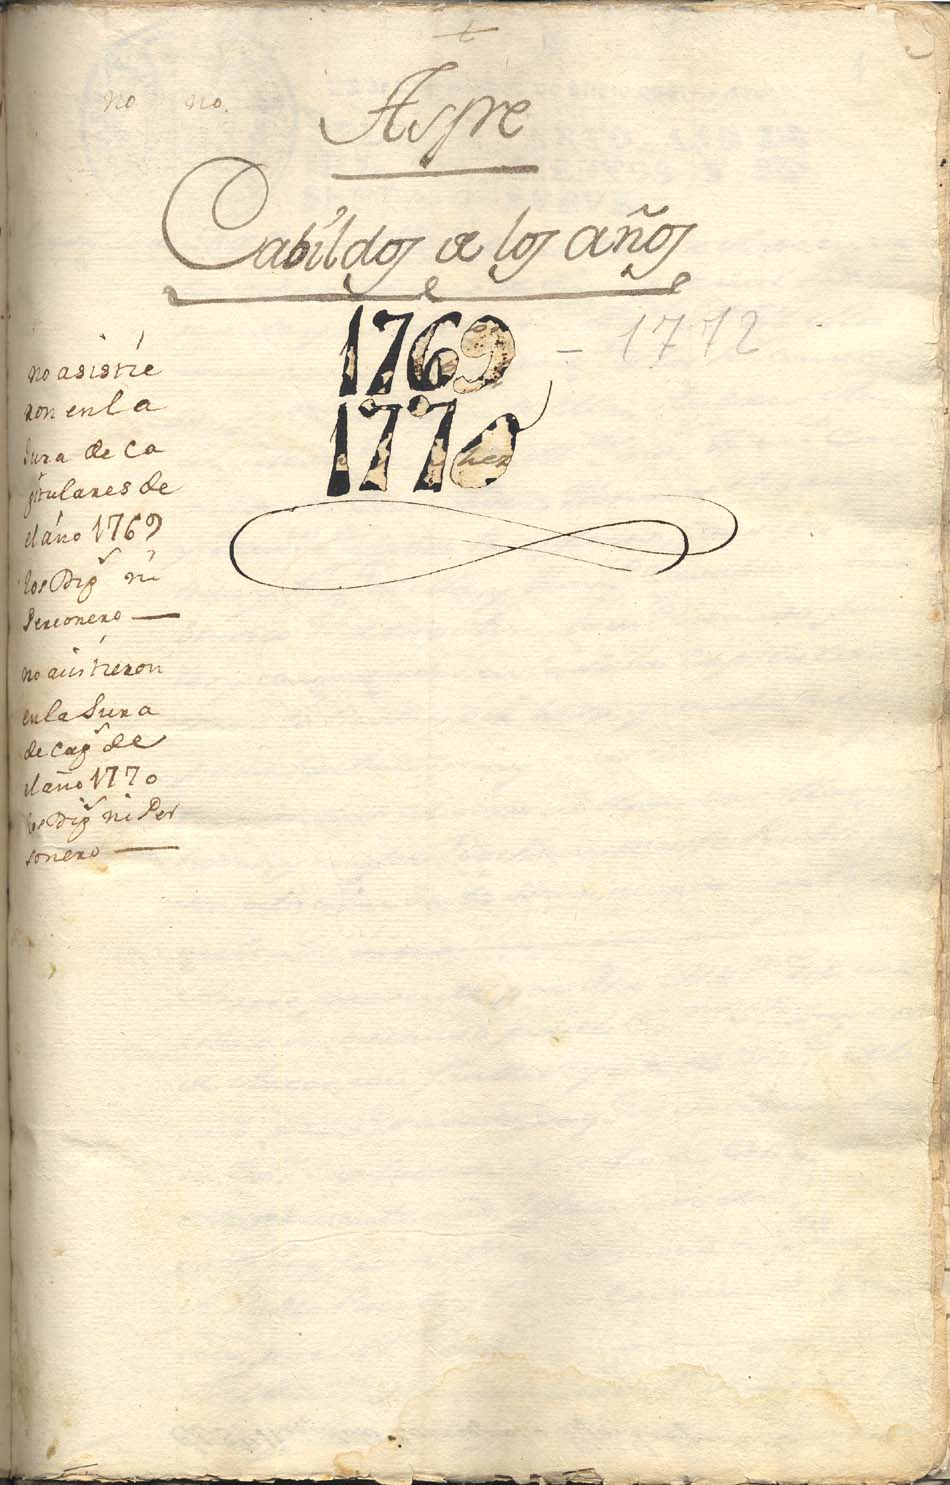 +
no no.
Aspe
Cabildos de los años
1769 - 1772
1770
no asistie
ron en la
Jura de Ca
pitulares de
el año 1769
los Dip.s ni
Personero —
no asistieron
en la Jura
de Cap.s de
el año 1770
los Dip.s ni Per
sonero —